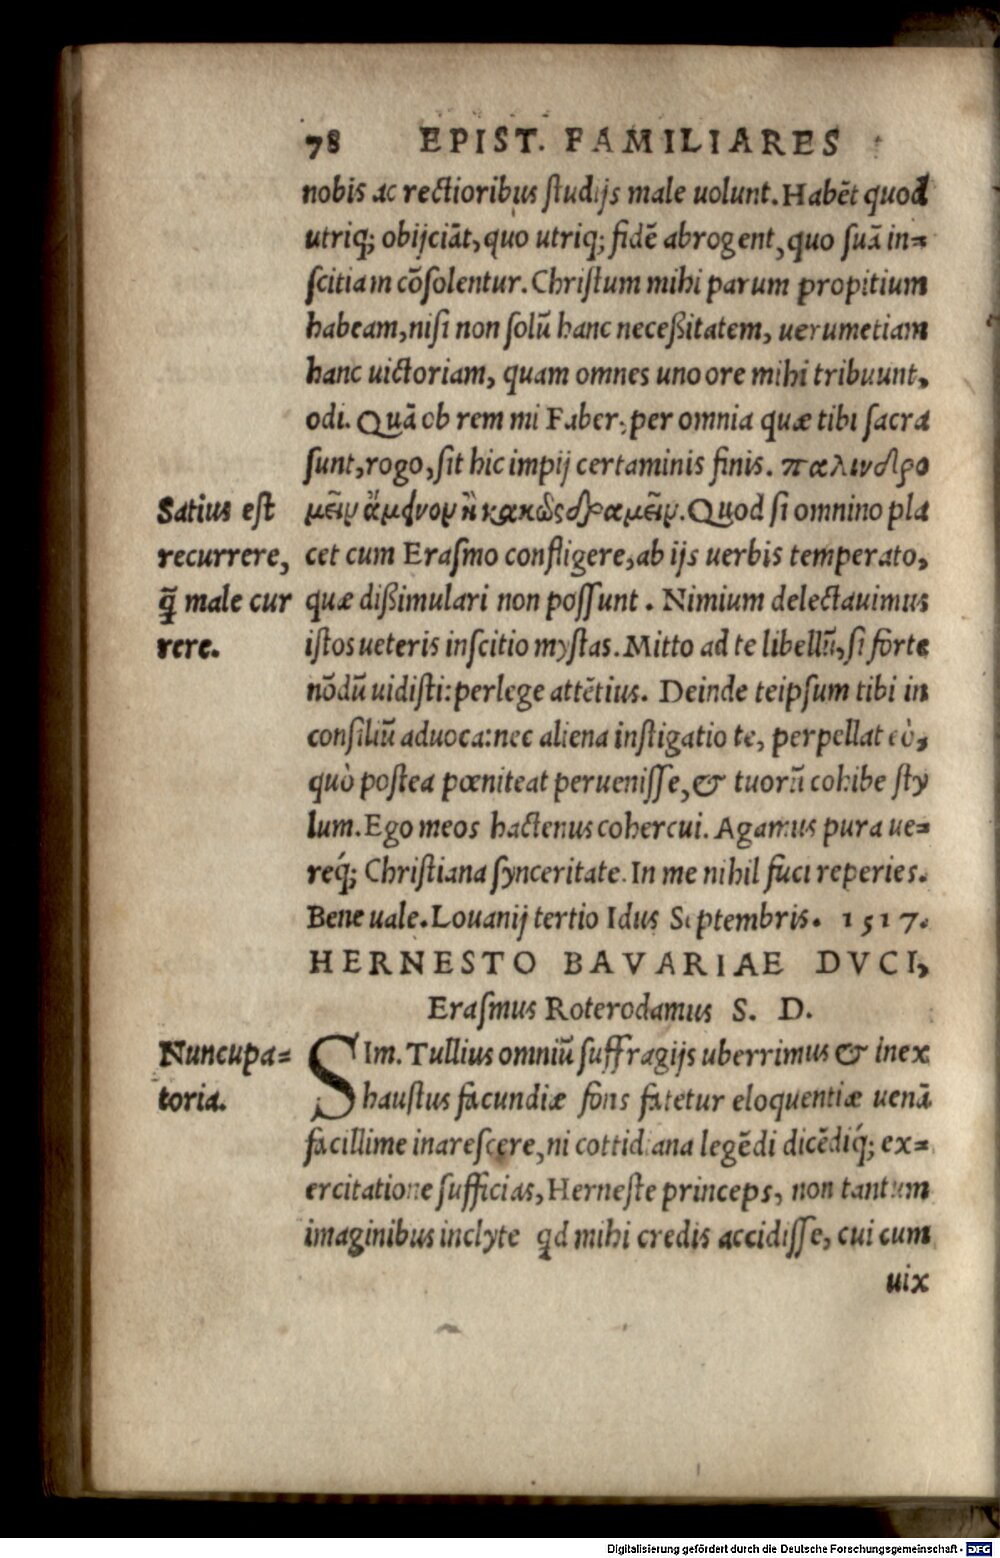 78 EPIST. FAMILIARES
nobis ac rectioribus studijs male uolunt. Habēt quod
utriq; obijciāt, quo utriq; fidē abrogent, quo suā in=
scitiam cōsolentur. Christum mihi parum propitium
habeam, nisi non solū hanc neceßitatem, uerumetiam
hanc uictoriam, quam omnes uno ore mihi tribuunt,
odi. Quā ob rem mi Faber, per omnia quæ tibi sacra
sunt, rogo, sit hic impij certaminis finis. παλινδρο
Satius est
recurrere,
q̄ male cur
rere.
μεῖν ἄμεινον ἢ κακῶς δραμεῖν. Quod si omnino pla
cet cum Erasmo confligere, ab ijs uerbis temperato,
quæ dißimulari non possunt. Nimium delectauimus
istos ueteris inscitio mystas. Mitto ad te libellū, si forte
nōdū uidisti: perlege attētius. Deinde teipsum tibi in
consiliū aduoca: nec aliena instigatio te, perpellat eò,
quò postea pœniteat peruenisse, & tuorū cohibe sty
lum. Ego meos hactenus cohercui. Agamus pura ue=
req́; Christiana synceritate. In me nihil fuci reperies.
Bene uale. Louanij tertio Idus Septembris. 1517.
HERNESTO BAVARIAE DVCI,
Erasmus Roterodamus S. D.
Nuncupa=
toria.
SIm. Tullius omniū suffragijs uberrimus & inex
haustus facundiæ fons fatetur eloquentiæ uenā
facillime inarescere, ni cottidiana legēdi dicēdiq́; ex=
ercitatione sufficias, Herneste princeps, non tantum
imaginibus inclyte qd mihi credis accidisse, cui cum
uix
Digitalisierung gefördert durch die Deutsche Forschungsgemeinschaft - DFG